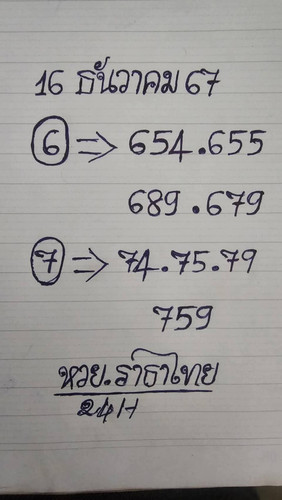 16 ธันวาคม 67
6 ⇒ 654.655
689.679
7 ⇒ 74.75.79
759
หวย.ราธาไทย
24H